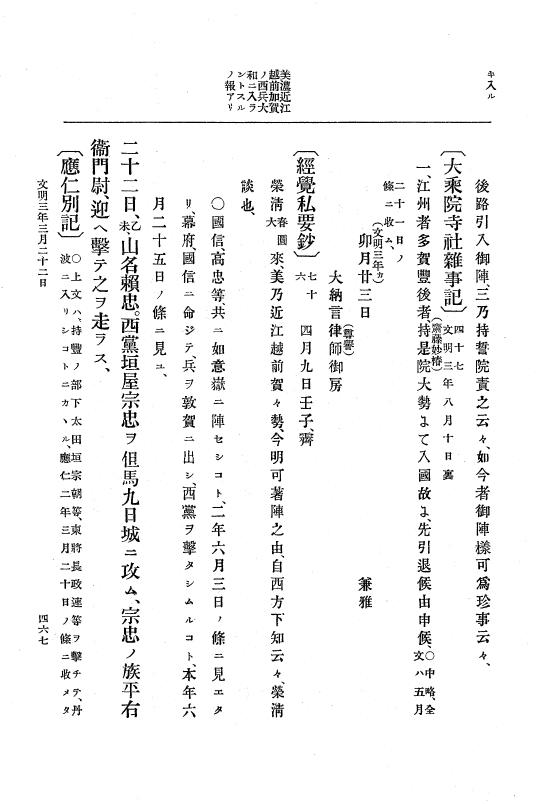 キ入ル
美濃近江
越前加賀
ノ西兵大
和ニ入ラ
ントスル
ノ報アリ
後路引入御陣、三乃持誓院責之云々、如今者御陣樣可爲珍事云々、
〔大乘院寺社雜事記〕 四十七 文明三年八月十日裏
一、江州者多賀豐後者、持是院大勢よて入國故よ、先引退候由申候、○中略、全文ハ五月
(齋藤妙椿)
二十一日ノ條ニ收ム、
(文明三年カ)
卯月廿三日 兼雅
大納言律師御房
(尊譽)
〔經覺私要鈔〕 七十六 四月九日壬子、霽
榮淸春圓大來、美乃近江越前賀々勢、今明可著陣之由、自西方下知云々、榮淸
談也、
○國信、高忠等、共ニ如意嶽ニ陣セシコト、二年六月三日ノ條ニ見エタ
リ、幕府、國信ニ命ジテ、兵ヲ敦賀ニ出シ、西黨ヲ擊タシムルコト、本年六
月二十五日ノ條ニ見ユ、
二十二日、乙未、山名賴忠。西黨垣屋宗忠ヲ但馬九日城ニ攻ム、宗忠ノ族平右
衞門尉、迎ヘ擊テ之ヲ走ラス、
〔應仁別記〕 ○上文ハ、持豐ノ部下太田垣宗朝等、東將長政連等ヲ擊チテ、丹
波ニ入リシコトニカヽル、應仁二年三月二十日ノ條ニ收メタ
文明三年三月二十二日
四六七